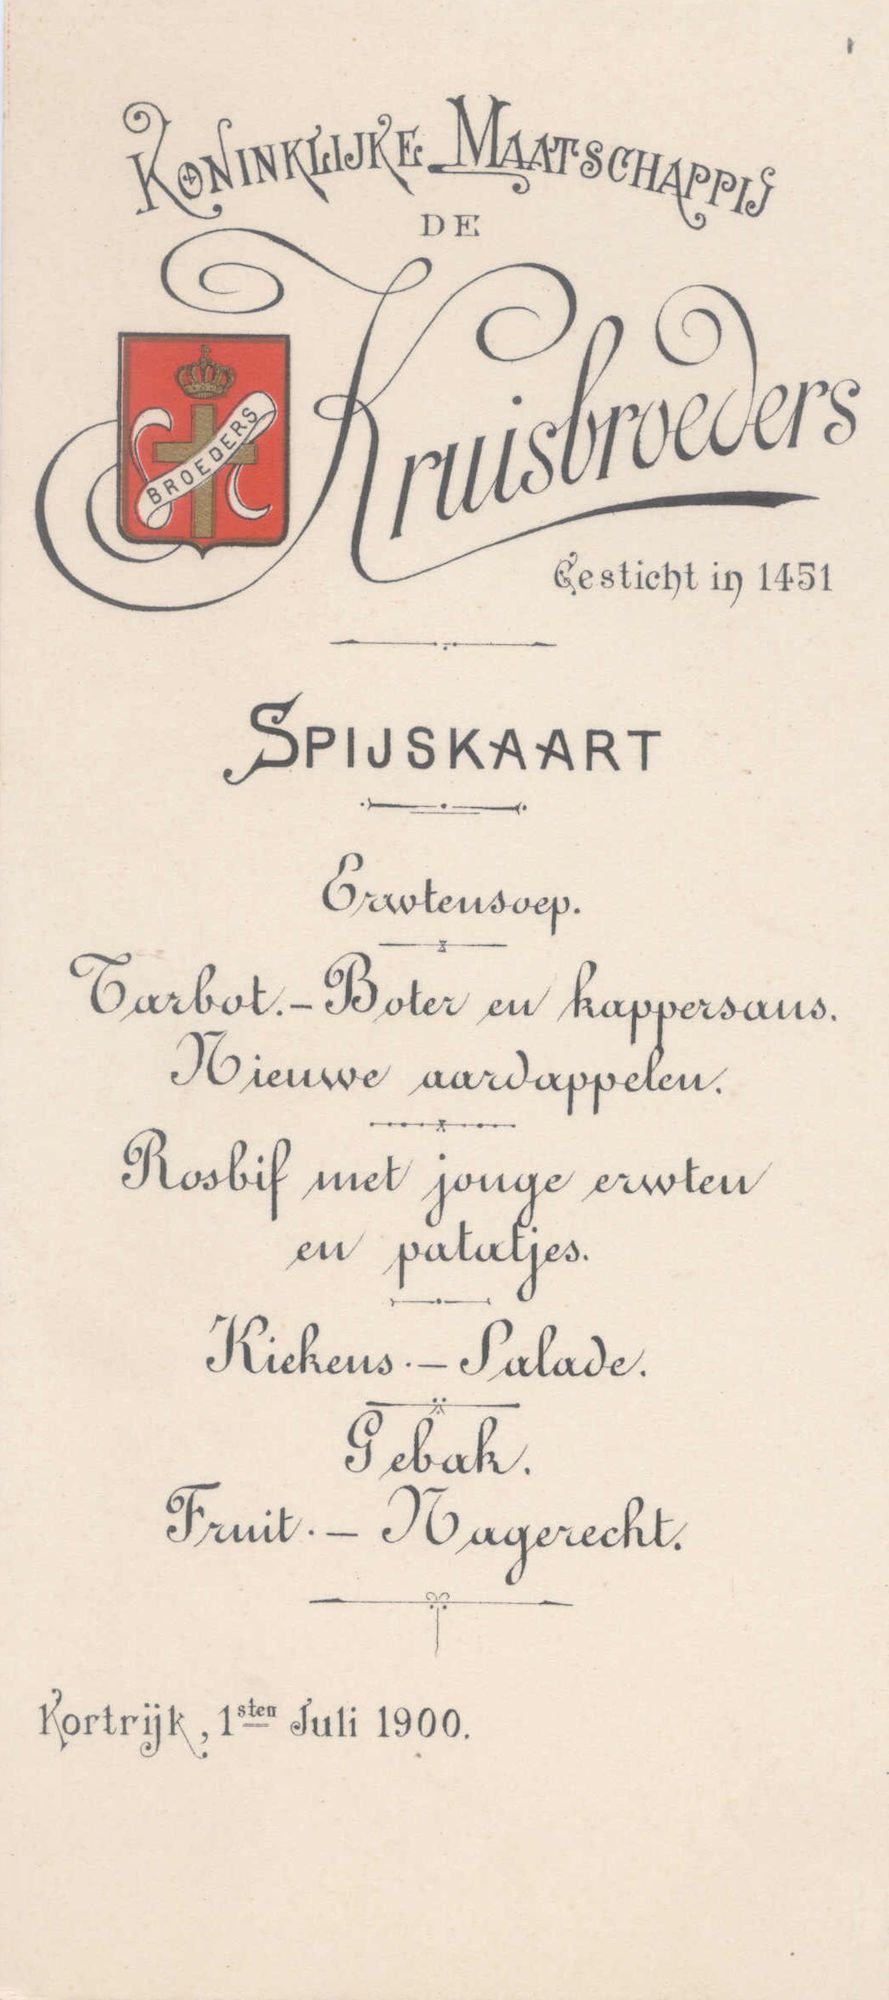 KONINKLIJKE MAATSCHAPPIJ
DE
Kruisbroeders
BROEDERS
Gesticht in 1451
SPIJSKAART
Erwtensoep.
Tarbot.- Boter en kappersaus.
Nieuwe aardappelen.
Rosbif met jonge erwten
en patatjes.
Kiekens. - Salade.
Gebak.
Fruit. - Nagerecht.
Kortrijk, 1sten Juli 1900.